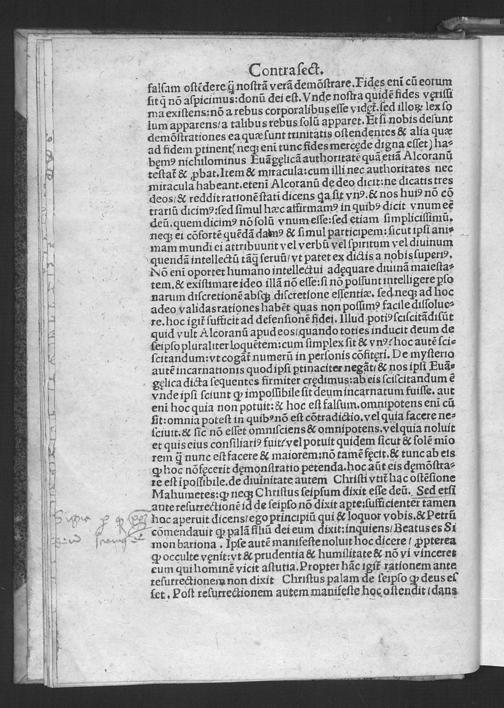 Contra sect.
falsam ostēdere q̄ nostrā verā demōstrare. Fides enī cū eorum
sit q̄ nō aspicimus: donū dei est. Vnde nostra quidē fides verissi
ma existens: nō a rebus corporalibus esse videt. sed illoꝝ lex so
lum apparens / a talibus rebus solū apparet. Et si nobis desunt
demōstrationes ea quæ sunt trinitatis ostendentes & alia quæ
ad fidem ptinent (neqꝫ enī tunc fides mercede digna esset) ha-
bemꝰ nichilominus Euāgelicā authoritatē quā etiā Alcoranū
testat̄ & ꝓbat. Item & miracula: cum illi nec authoritates nec
miracula habeant. etenī Alcoranū de deo dicit: ne dicatis tres
deos / & reddit rationē stati dicens qa sit vnꝰ. & nos huiꝰ nō cō
trariū dicimꝰ: sed simul hæc affirmamꝰ in quibꝰ dicit vnum eē
deū. quem dicimꝰ nō solū vnum esse: sed etiam simplicissimū.
neqꝫ ei cōsortē quēdā damꝰ & simul participem: sicut ipsi ani-
mam mundi ei attribuunt vel verbū vel spiritum vel diuinum
quendā intellectū tāꝗ seruū / vt patet ex dictis a nobis superiꝰ.
Nō enī oportet humano intellectui adequare diuinā maiesta-
tem. & existimare ideo illā nō esse: si nō possunt intelligere pso
narum discretionē absqꝫ discretione essentiæ. sed neqꝫ ad hoc
adeo validas rationes habēt quas non possimꝰ facile dissolue-
re. hoc igit̄ sufficit ad defensionē fidei. Illud potiꝰ sciscitādū st̄
quid vult Alcoranū apud eos / quando toties inducit deum de
seipso pluraliter loquētem: cum simplex sit & vnꝰ / hoc autē sci-
scitandum: vt cogāt̄ numerū in personis cōfiteri. De mysterio
autē incarnationis quod ipsi ptinaciter negāt / & nos ipsi Euā-
gelica dicta sequentes firmiter credimus: ab eis sciscitandum ē
vnde ipsi sciunt ꝙ impossibile sit deum incarnatum fuisse. aut
enī hoc quia non potuit: & hoc est falsum. omnipotens enī cū
sit: omnia potest in quibꝰ nō est cōtradictio. vel quia facere ne-
sciuit. & sic nō esset omnisciens & omnipotens. vel quia noluit
et quis eius consiliariꝰ fuit / vel potuit quidem sicut & solē mio
rem q̄ nunc est facere & maiorem: nō tamē fecit. & tunc ab eis
ꝙ hoc nō fecerit demonstratio petenda. hoc aūt eis demōstra-
re est ipossibile. de diuinitate autem Christi vti hac ostēsione
Mahumetes: ꝙ neqꝫ Christus seipsum dixit esse deū. Sed etsi
ante resurrectionē id de seipso nō dixit apte: sufficienter tamen
hoc aperuit dicens / ego principiū qui & loquor vobis. & Petrū
cōmendauit ꝙ palā filiū dei eum dixit: inquiens / Beatus es Si
mon bariona. Ipse autē manifeste noluit hoc dicere / ꝓpterea
ꝙ occulte venit: vt & prudentia & humilitate & nō vi vinceret
eum qui hominē vicit astutia. Propter hāc igit̄ rationem ante
resurrectionem non dixit Christus palam de seipso ꝙ deus es
set. Post resurrectionem autem manifeste hoc ostendit / dans